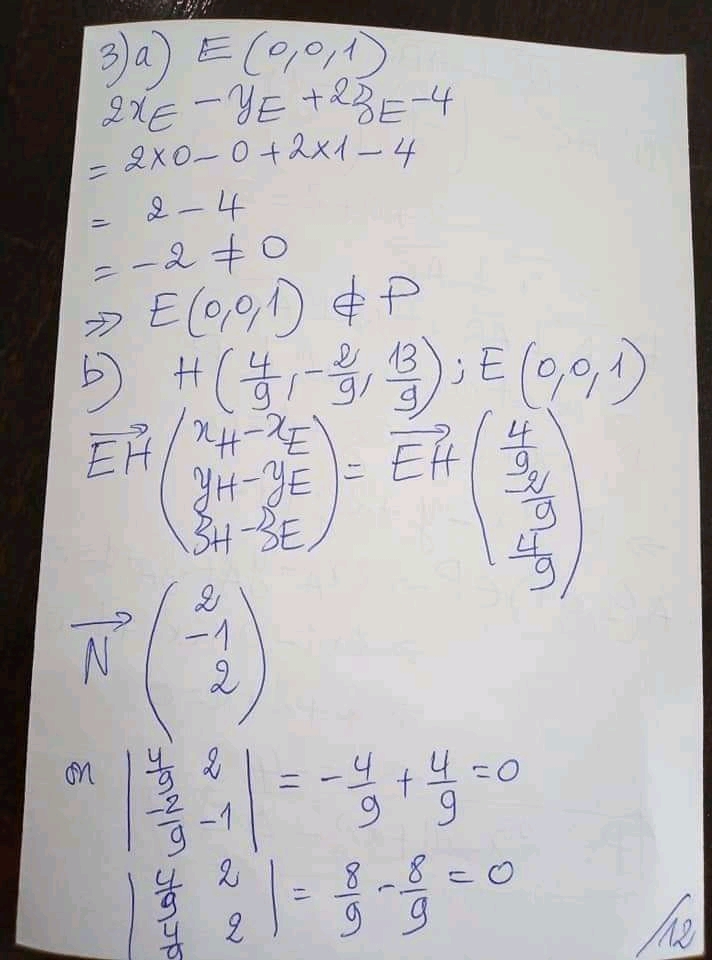 3) a) E(0,0,1)
2x_E - y_E + 2z_E - 4
= 2×0 - 0 + 2×1 - 4
= 2 - 4
= -2 ≠ 0
⇒ E(0,0,1) ∉ P
b) H(4/9, -2/9, 13/9) ; E(0,0,1)
→EH (x_H - x_E, y_H - y_E, z_H - z_E) = →EH (4/9, -2/9, 4/9)
→N (2, -1, 2)
on |4/9 2; -2/9 -1| = -4/9 + 4/9 = 0
|4/9 2; 4/9 2| = 8/9 - 8/9 = 0
/12